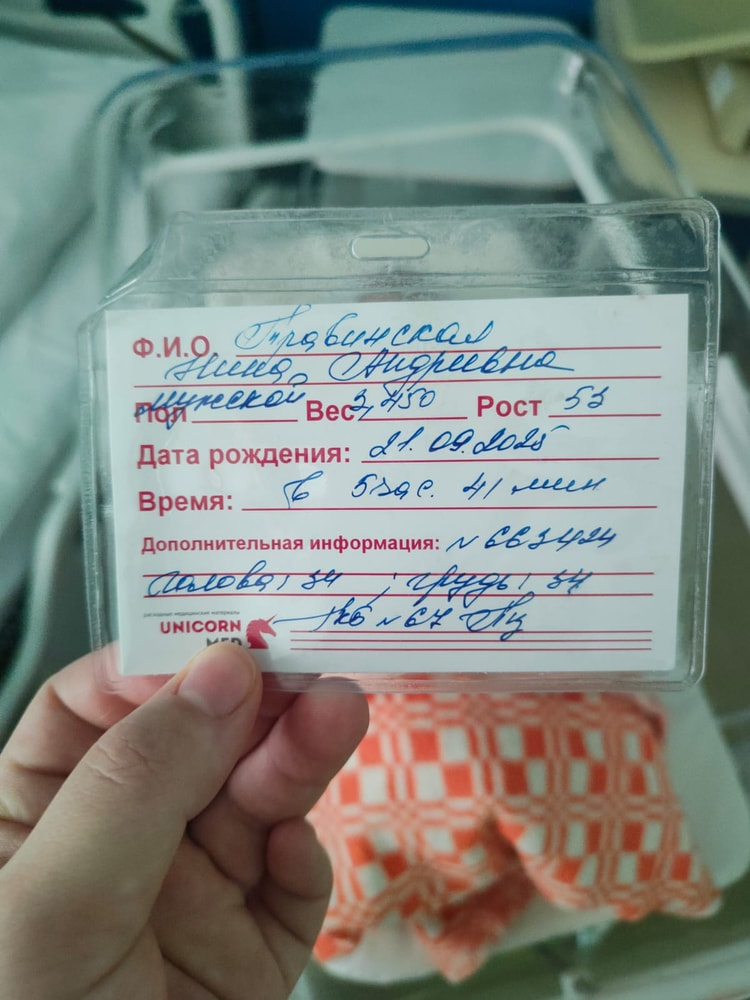 Ф.И.О. Травинская
Нина Андриевна
Пол мужской Вес 3,450 Рост 53
Дата рождения: 21.09.2025
Время: в 5 час. 41 мин
Дополнительная информация: N 663424
голова: 34 ; грудь: 34
расходные медицинские материалы
UNICORN
MED N 67